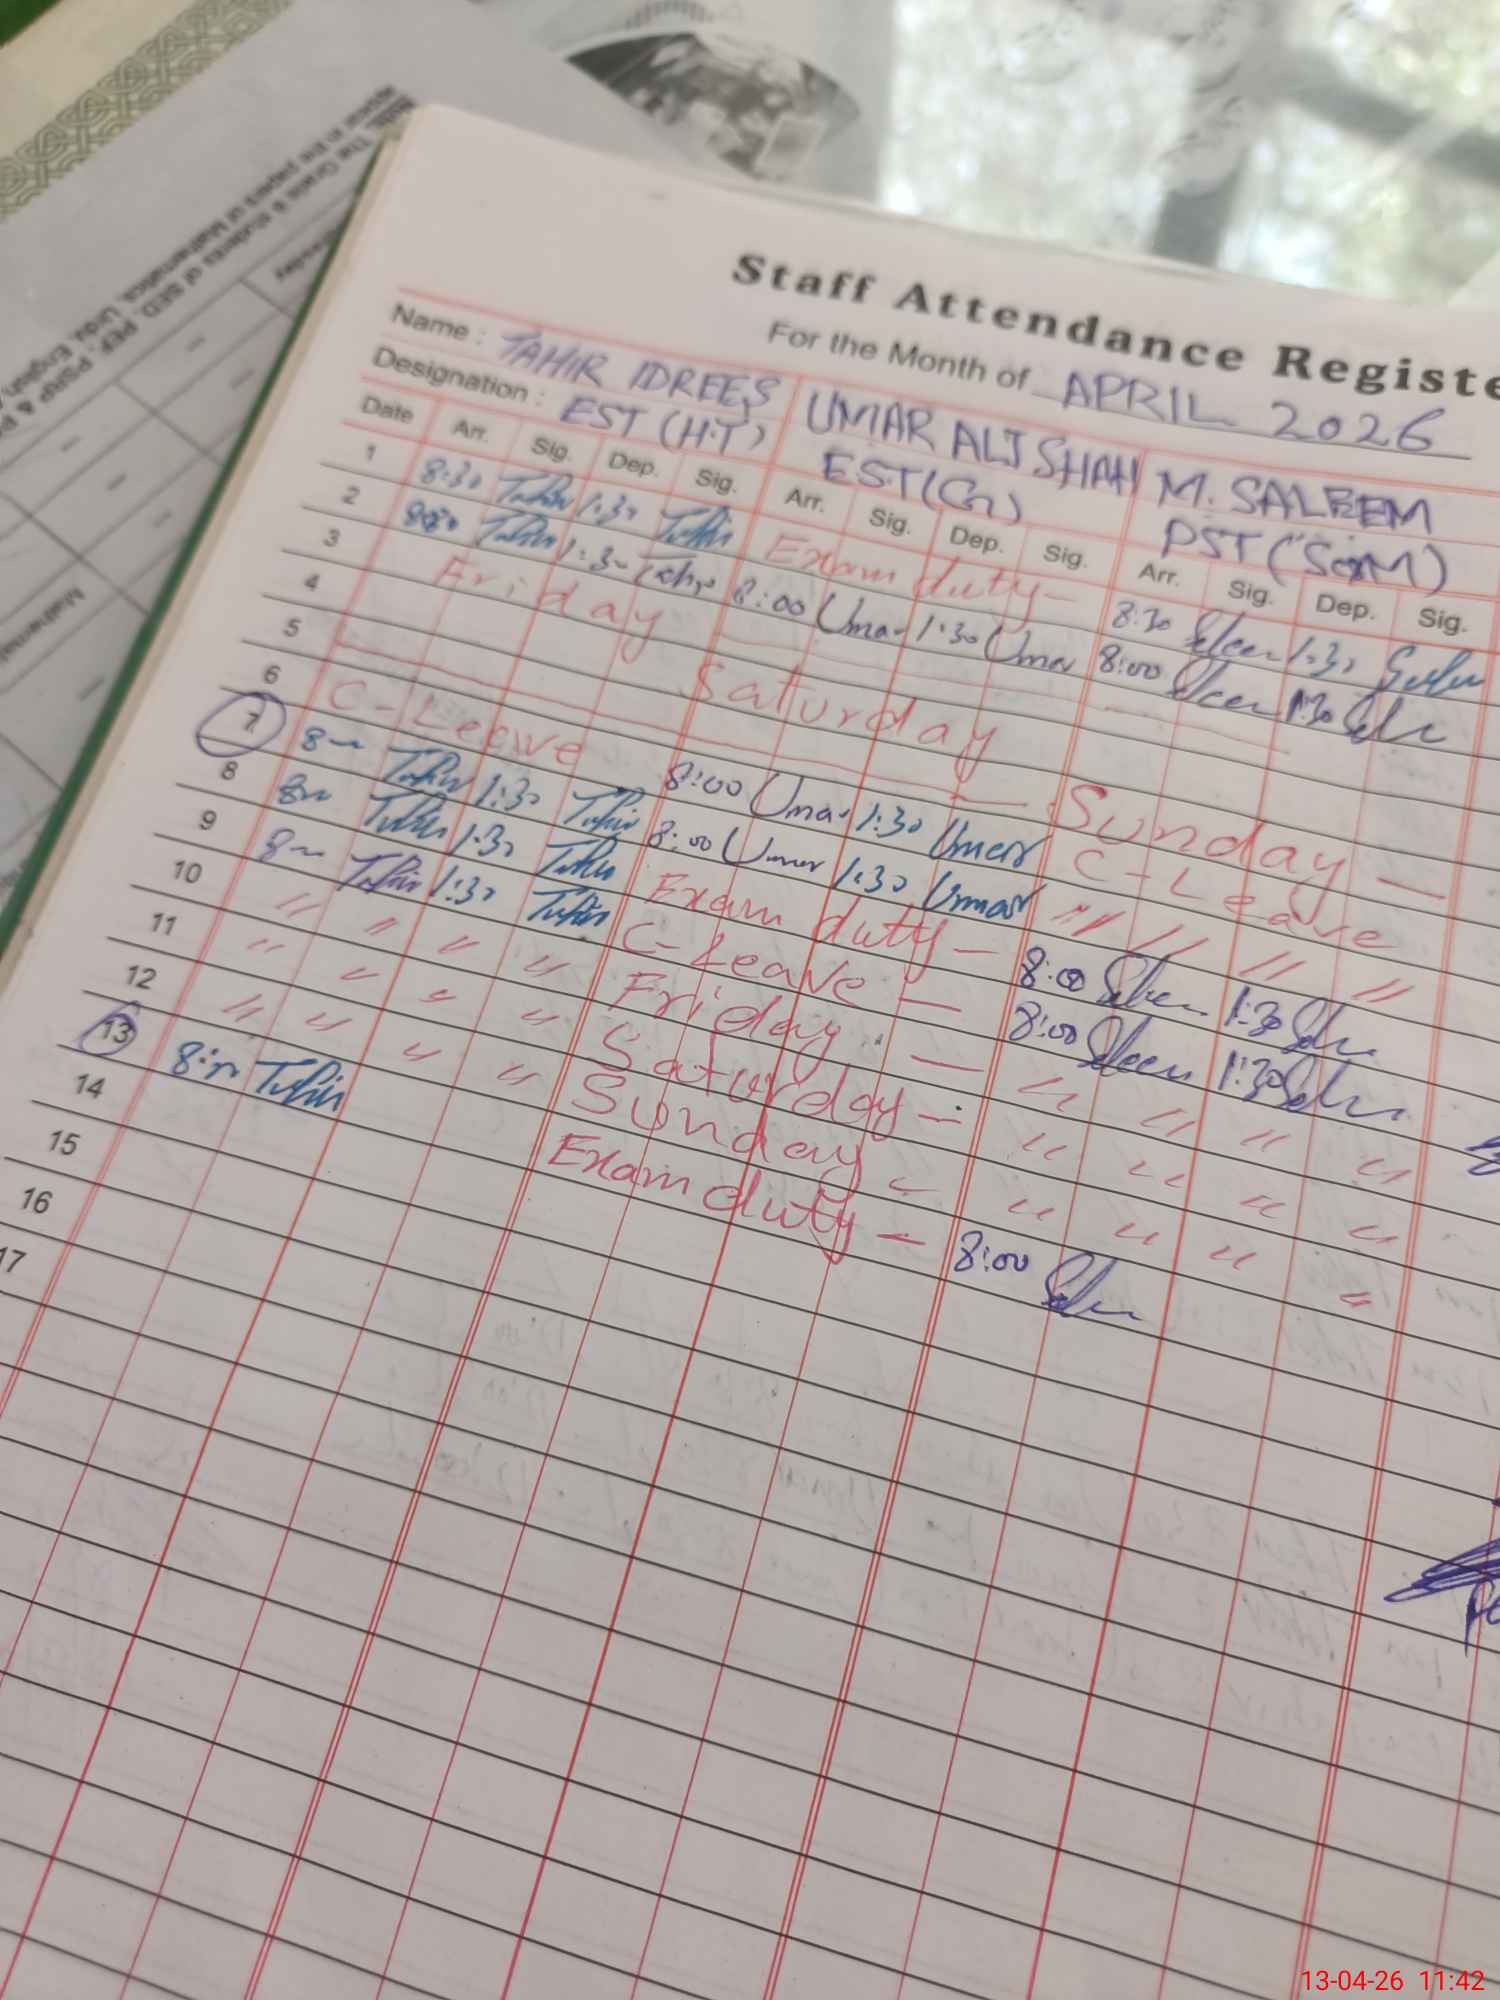 Staff Attendance Registe
For the Month of APRIL 2026
Name : TAHIR IDREES UMAR ALI SHAH M. SALEEM
Designation : EST (H.T) EST(G) PST
Date Arr. Sig. Dep. Sig. Arr. Sig. Dep. Sig. Arr. Sig. Dep. Sig.
1 8:30 Tahir 1:30 Tahir Exam duty - 8:30 Saleem 1:30
2 Tahir 1:30 8:00 Umar 1:30 Umar 8:00 Saleem 1:30
3 Friday
4 Saturday
5 Sunday —
6 C-Leave 8:00 Umar 1:30 Umar C-Leave
7 8 Tahir 1:30 Tahir 8:00 Umar 1:30 Umar " " " "
8 8 Tahir 1:30 Tahir Exam duty - 8:00 Saleem 1:30
9 8 Tahir 1:30 Tahir C-Leave — 8:00 Saleem 1:30
10 " " " " Friday — " " " "
11 " " " " Saturday — " " " "
12 " " " " Sunday " " " "
13 Tahir Exam duty — 8:00
14
15
16
17
The Grade 8 students of SED, PEF, PSRP &
appear in the papers of Mathematics, Urdu, English
13-04-26 11:42